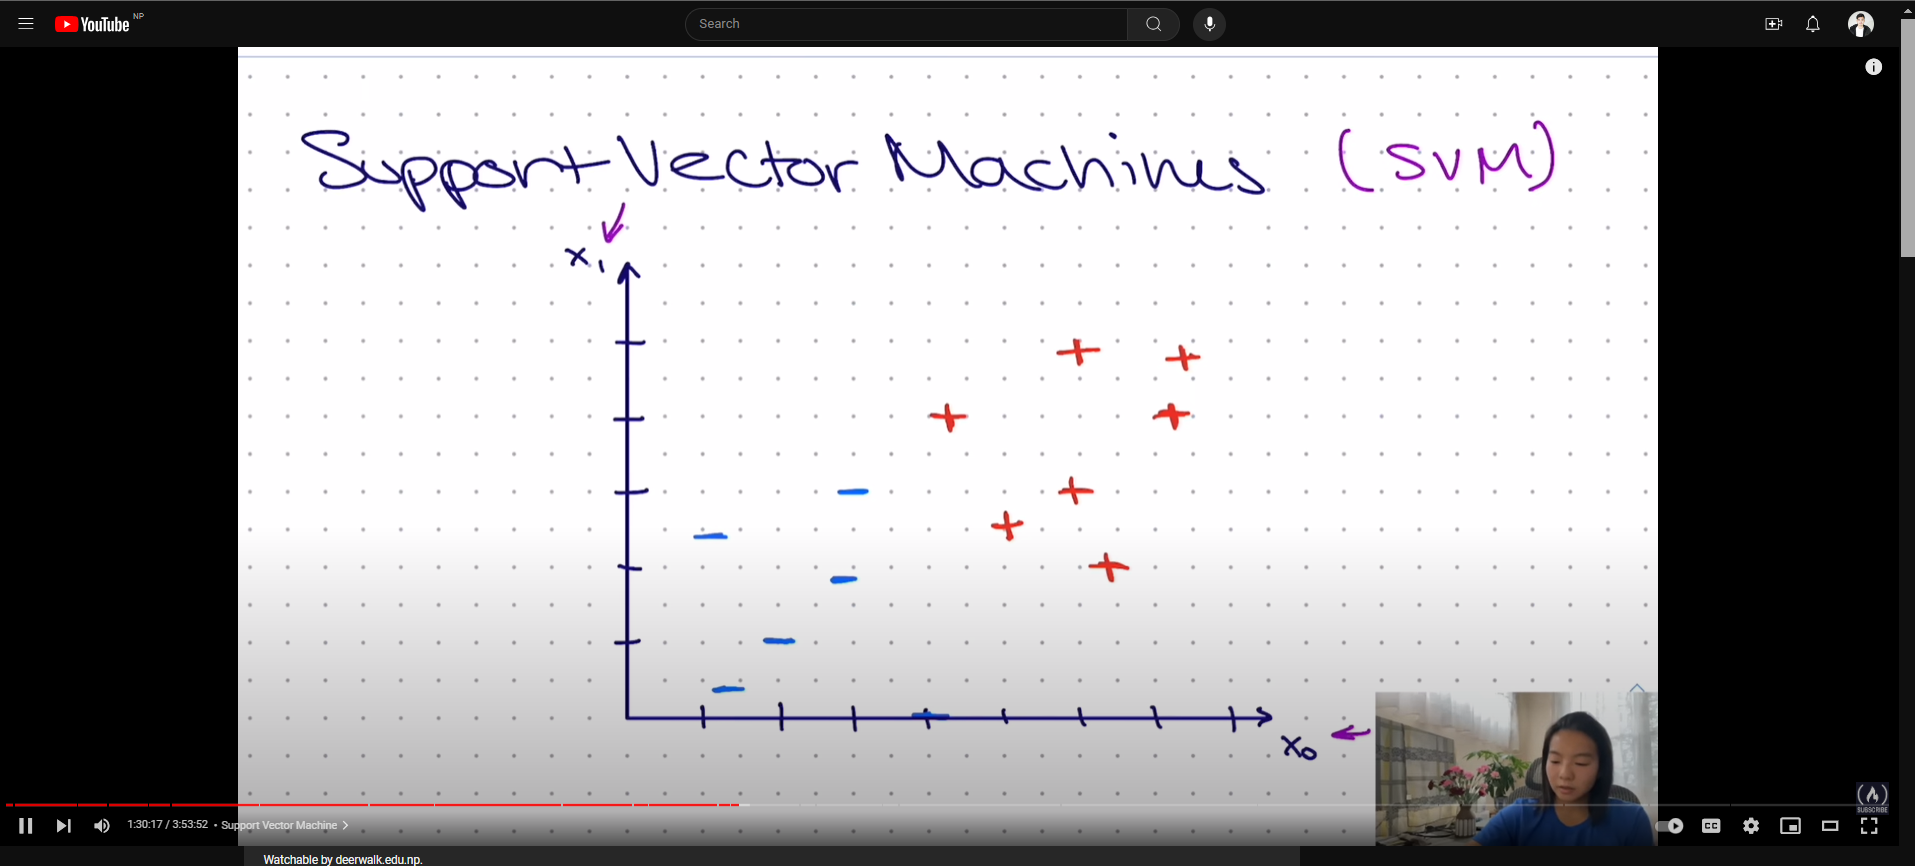 YouTube NP
Search
Support Vector Machines (SVM)
x₁
x₀
SUBSCRIBE
1:30:17 / 3:53:52 • Support Vector Machine
CC
Watchable by deerwalk.edu.np.